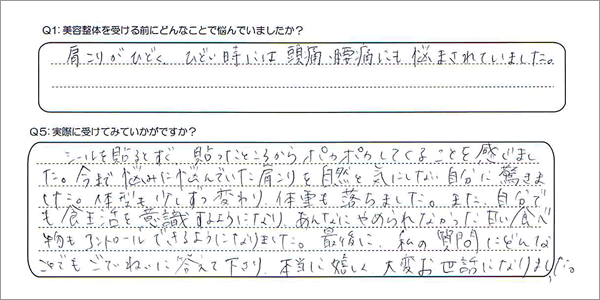 Q1:美容整体を受ける前にどんなことで悩んでいましたか?
肩こりがひどく、ひどい時には頭痛、腰痛にも悩まされていました。
Q5:実際に受けてみていかがですか?
シールを貼るとすぐ、貼ったところからポカポカしてくることを感じまし
た。今まで悩みに悩んでいた肩こりを自然と気にしない自分に驚きま
した。体型も少しずつ変わり、体重も落ちました。また、自分で
も食生活を意識するようになり、あんなにやめられなかった甘い食べ
物もコントロールできるようになりました。最後に、私の質問にどんな
ことでもごていねいに答えて下さり、本当に嬉しく大変お世話になりました。